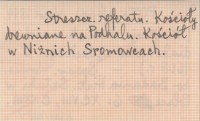 Streszcz. referatu. Kościoły
drewniane na Podhalu. Kościół
w Niżnich Sromowcach.